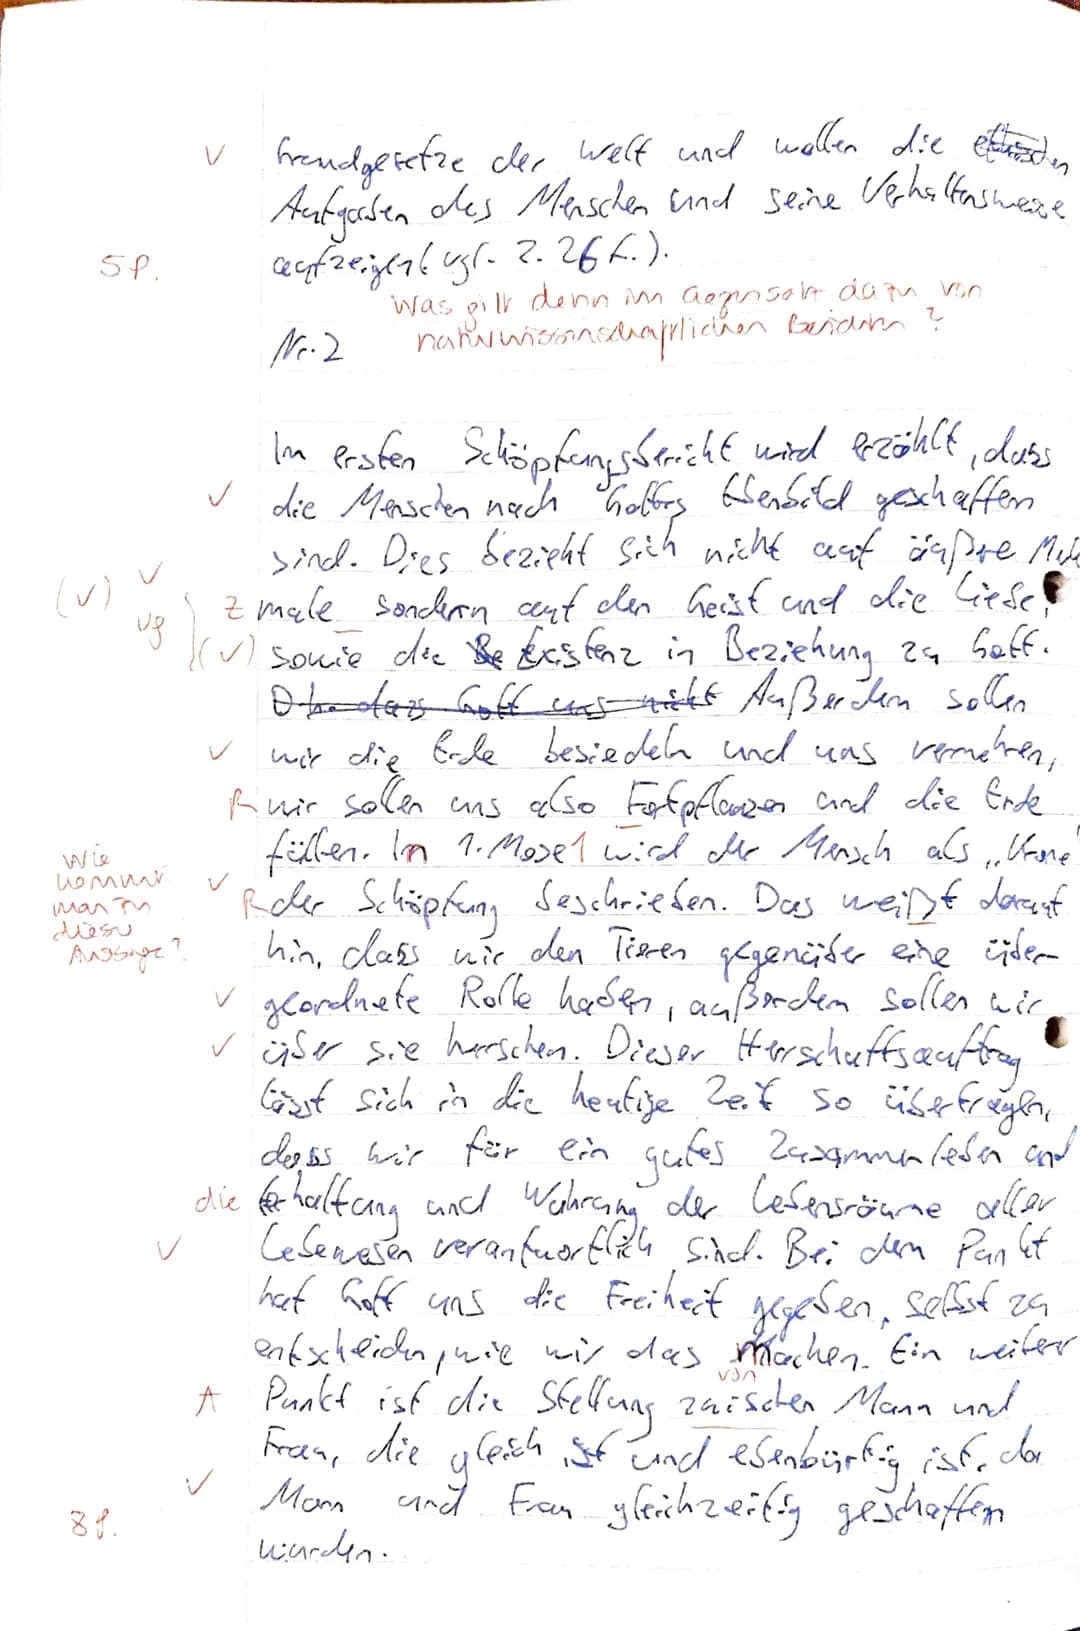 ✓ Grundgesetze der Welt und wollen die ethischen
Aufgaben des Menschen und seine Verhaltensweise
5P. aufzeigen (vgl. Z. 26 f.).
Was gilt denn im Gegensatz dazu von
naturwissenschaftlichen Berichten?
Nr. 2
Im ersten Schöpfungsbericht wird erzählt, dass
✓ die Menschen nach Gottes Ebenbild geschaffen
sind. Dies bezieht sich nicht auf äußre Merk
(✓) ✓ Z male sondern auf den Geist und die Liebe,
vg (✓) sowie die Existenz in Beziehung zu Gott.
Außerdem sollen
✓ wir die Erde besiedeln und uns vermehren,
R wir sollen uns also Fortpflanzen und die Erde
füllen. In 1. Mose 1 wird der Mensch als „Krone"
Wie
kommt
man zu
dieser
Aussage?
✓ R der Schöpfung beschrieben. Das weißt darauf
hin, dass wir den Tieren gegenüber eine über-
✓ geordnete Rolle haben, außerdem sollen wir
✓ über sie herrschen. Dieser Herrschaftsauftrag
lässt sich in die heutige Zeit so übertragen,
dass wir für ein gutes Zusammenleben und
die Erhaltung und Wahrung der Lebensräume aller
✓ Lebewesen verantwortlich sind. Bei dem Punkt
hat Gott uns die Freiheit gegeben, selbst zu
entscheiden, wie wir das machen. Ein weiterer
von
A Punkt ist die Stellung zwischen Mann und
Frau, die gleich ist und ebenbürtig ist, da
✓ Mann und Frau gleichzeitig geschaffen
8P. wurden.